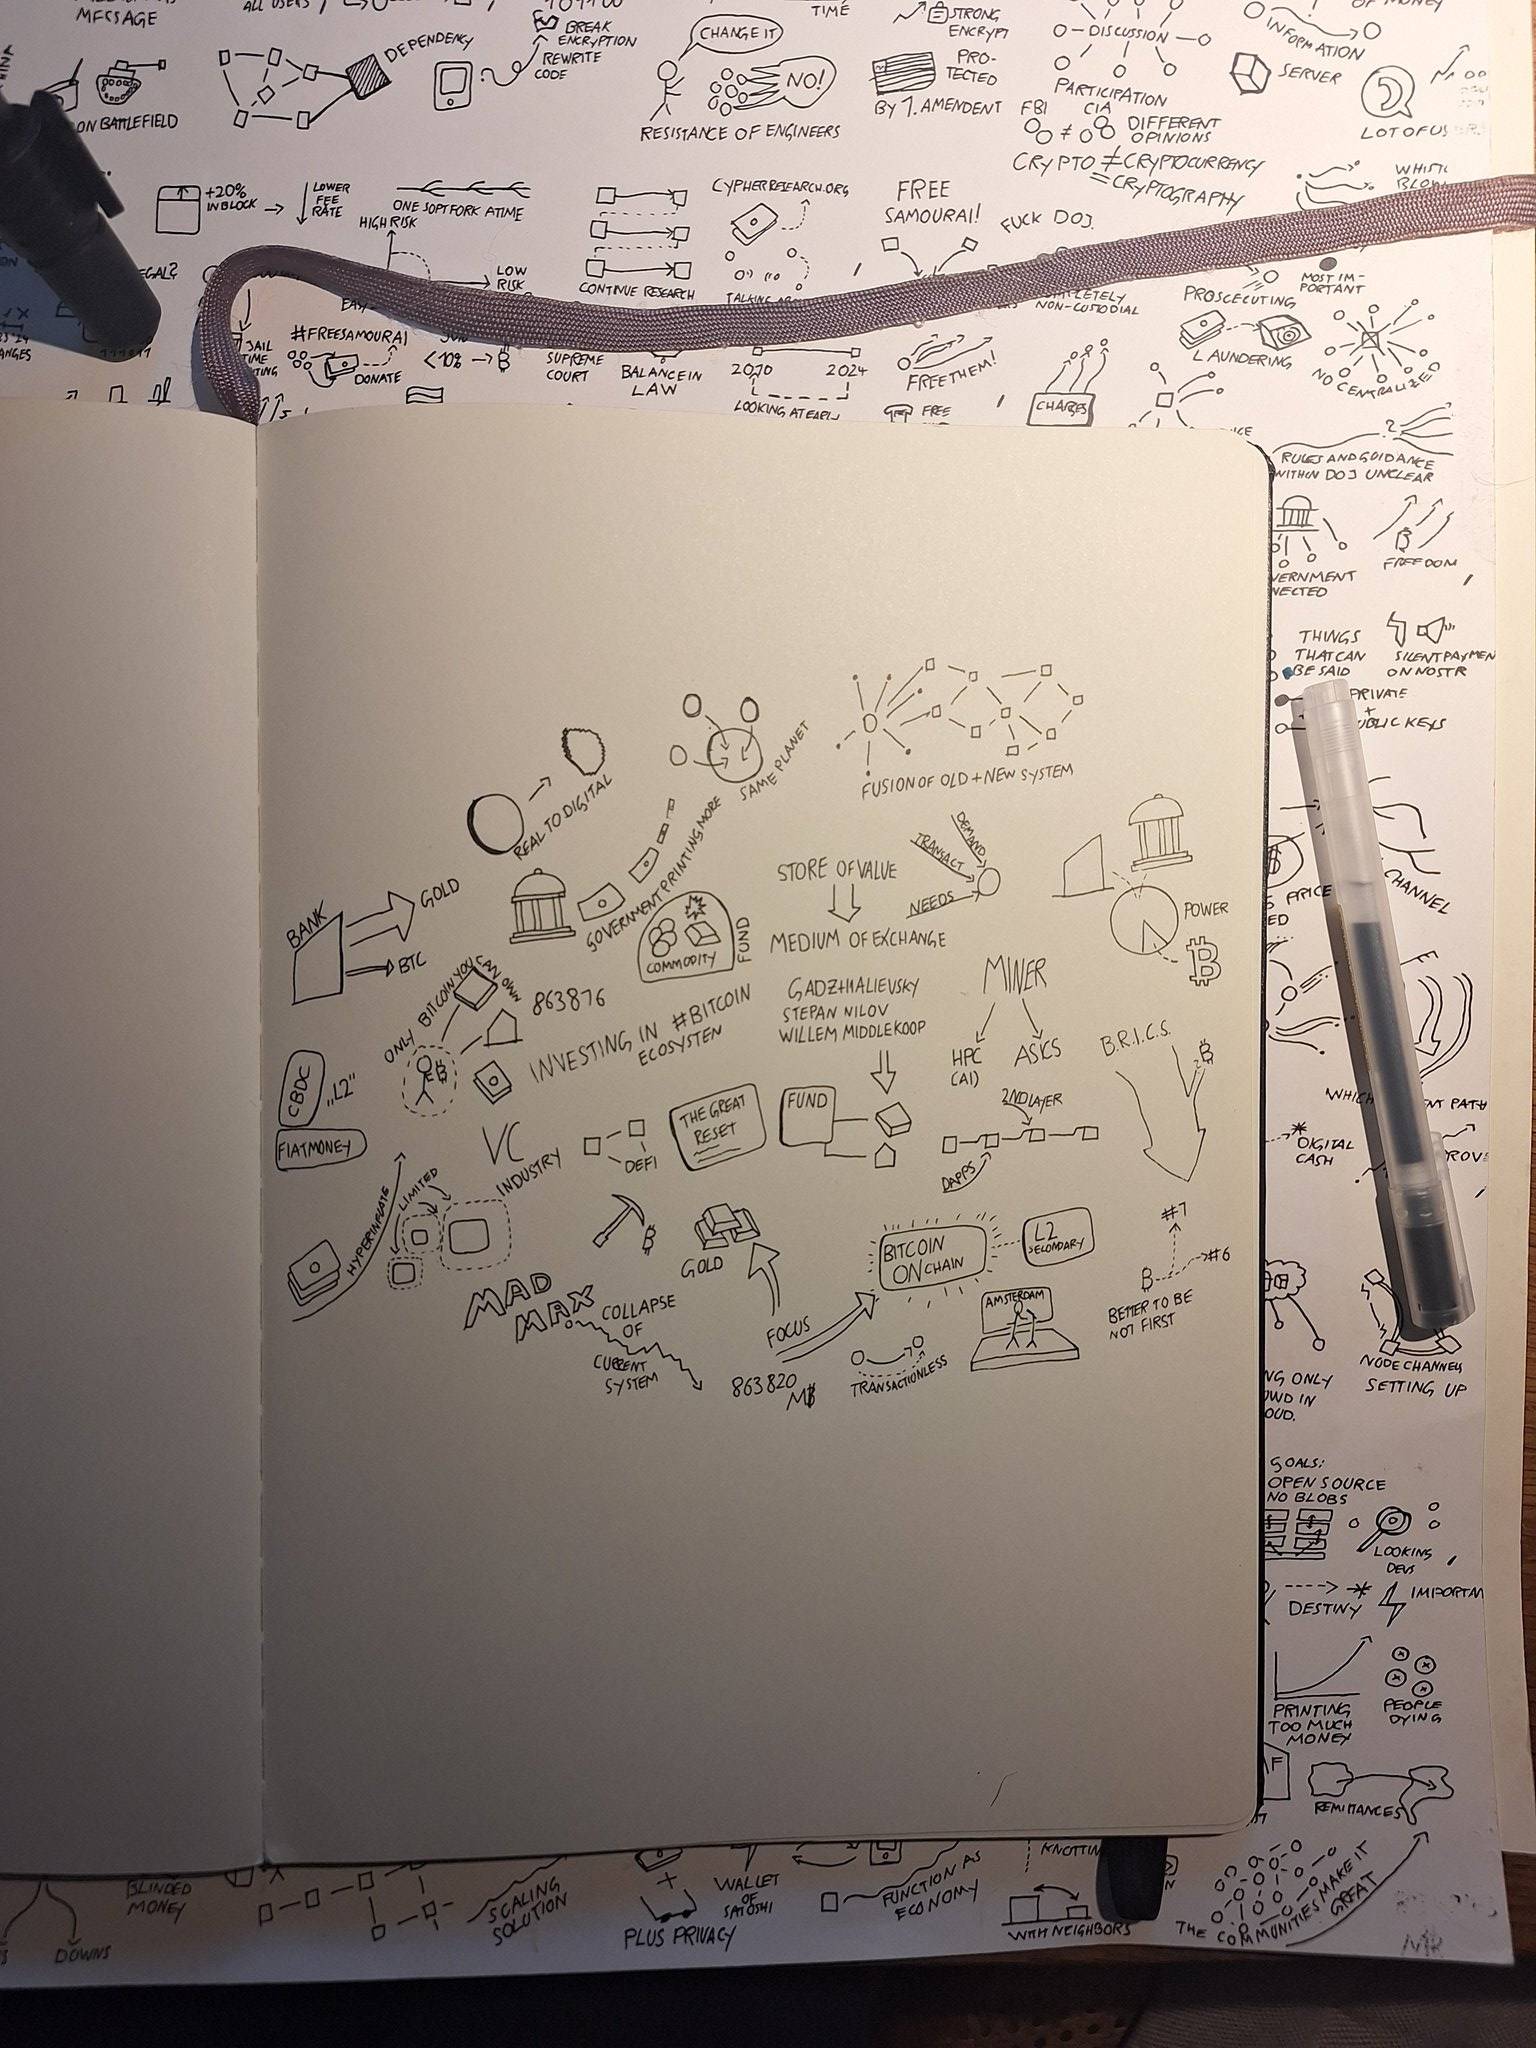 MESSAGE
ALL USERS
BREAK
ENCRYPTION
REWRITE
CODE
CHANGE IT
TIME
STRONG
DISCUSSION
INFORMATION
OF MONEY
DEPENDENCY
NO!
PRO-
TECTED
BY 1. AMENDENT
PARTICIPATION
SERVER
ON BATTLEFIELD
RESISTANCE OF ENGINEERS
FBI
CIA
DIFFERENT
OPINIONS
CRYPTO ≠ CRYPTOCURRENCY
= CRYPTOGRAPHY
+20%
IN BLOCK
LOWER
FEE
RATE
ONE SOFTFORK A TIME
HIGH RISK
LOW
RISK
CYPHERRESEARCH.ORG
CONTINUE RESEARCH
FREE
SAMOURAI!
FUCK DOJ.
NON-CUSTODIAL
PROSCECUTING
MOST IM-
PORTANT
JAIL
TIME
#FREESAMOURAI
DONATE
<10%
SUPREME
COURT
BALANCE IN
LAW
2010
2024
FREE THEM!
LAUNDERING
NO CENTRALIZED
CHARGES
FREE
RULES AND GUIDANCE
WITHIN DOJ UNCLEAR
FREEDOM
THINGS
THAT CAN
BE SAID
ON NOSTR
PRIVATE
+
CHANNEL
DIGITAL
CASH
NODE CHANNEL
SETTING UP
GOALS:
OPEN SOURCE
NO BLOBS
LOOKING
DEVS
DESTINY
PRINTING
TOO MUCH
MONEY
PEOPLE
DYING
REMITTANCES
THE COMMUNITIES MAKE IT
GREAT
REAL TO DIGITAL
SAME PLANET
FUSION OF OLD + NEW SYSTEM
GOVERNMENT PRINTING MORE
BANK
GOLD
BTC
COMMODITY
FUND
STORE OF VALUE
MEDIUM OF EXCHANGE
TRANSACT
DEMAND
NEEDS
POWER
ONLY BITCOIN YOU CAN OWN
863876
INVESTING IN #BITCOIN
ECOSYSTEM
GADZHIALIEVSKY
STEPAN NILOV
WILLEM MIDDLEKOOP
MINER
HPC
(AI)
ASICS
B.R.I.C.S.
CBDC
„L2"
FIATMONEY
VC
INDUSTRY
DEFI
THE GREAT
RESET
FUND
2ND LAYER
DAPPS
HYPERINFLATE
LIMITED
GOLD
BITCOIN
ON CHAIN
L2
SECONDARY
#7
#6
BETTER TO BE
NOT FIRST
MAD
MAX
COLLAPSE
OF
CURRENT
SYSTEM
FOCUS
863820
TRANSACTIONLESS
AMSTERDAM
BLINDED
MONEY
DOWNS
SCALING
SOLUTION
PLUS PRIVACY
WALLET
OF
SATOSHI
FUNCTION AS
ECONOMY
WITH NEIGHBORS